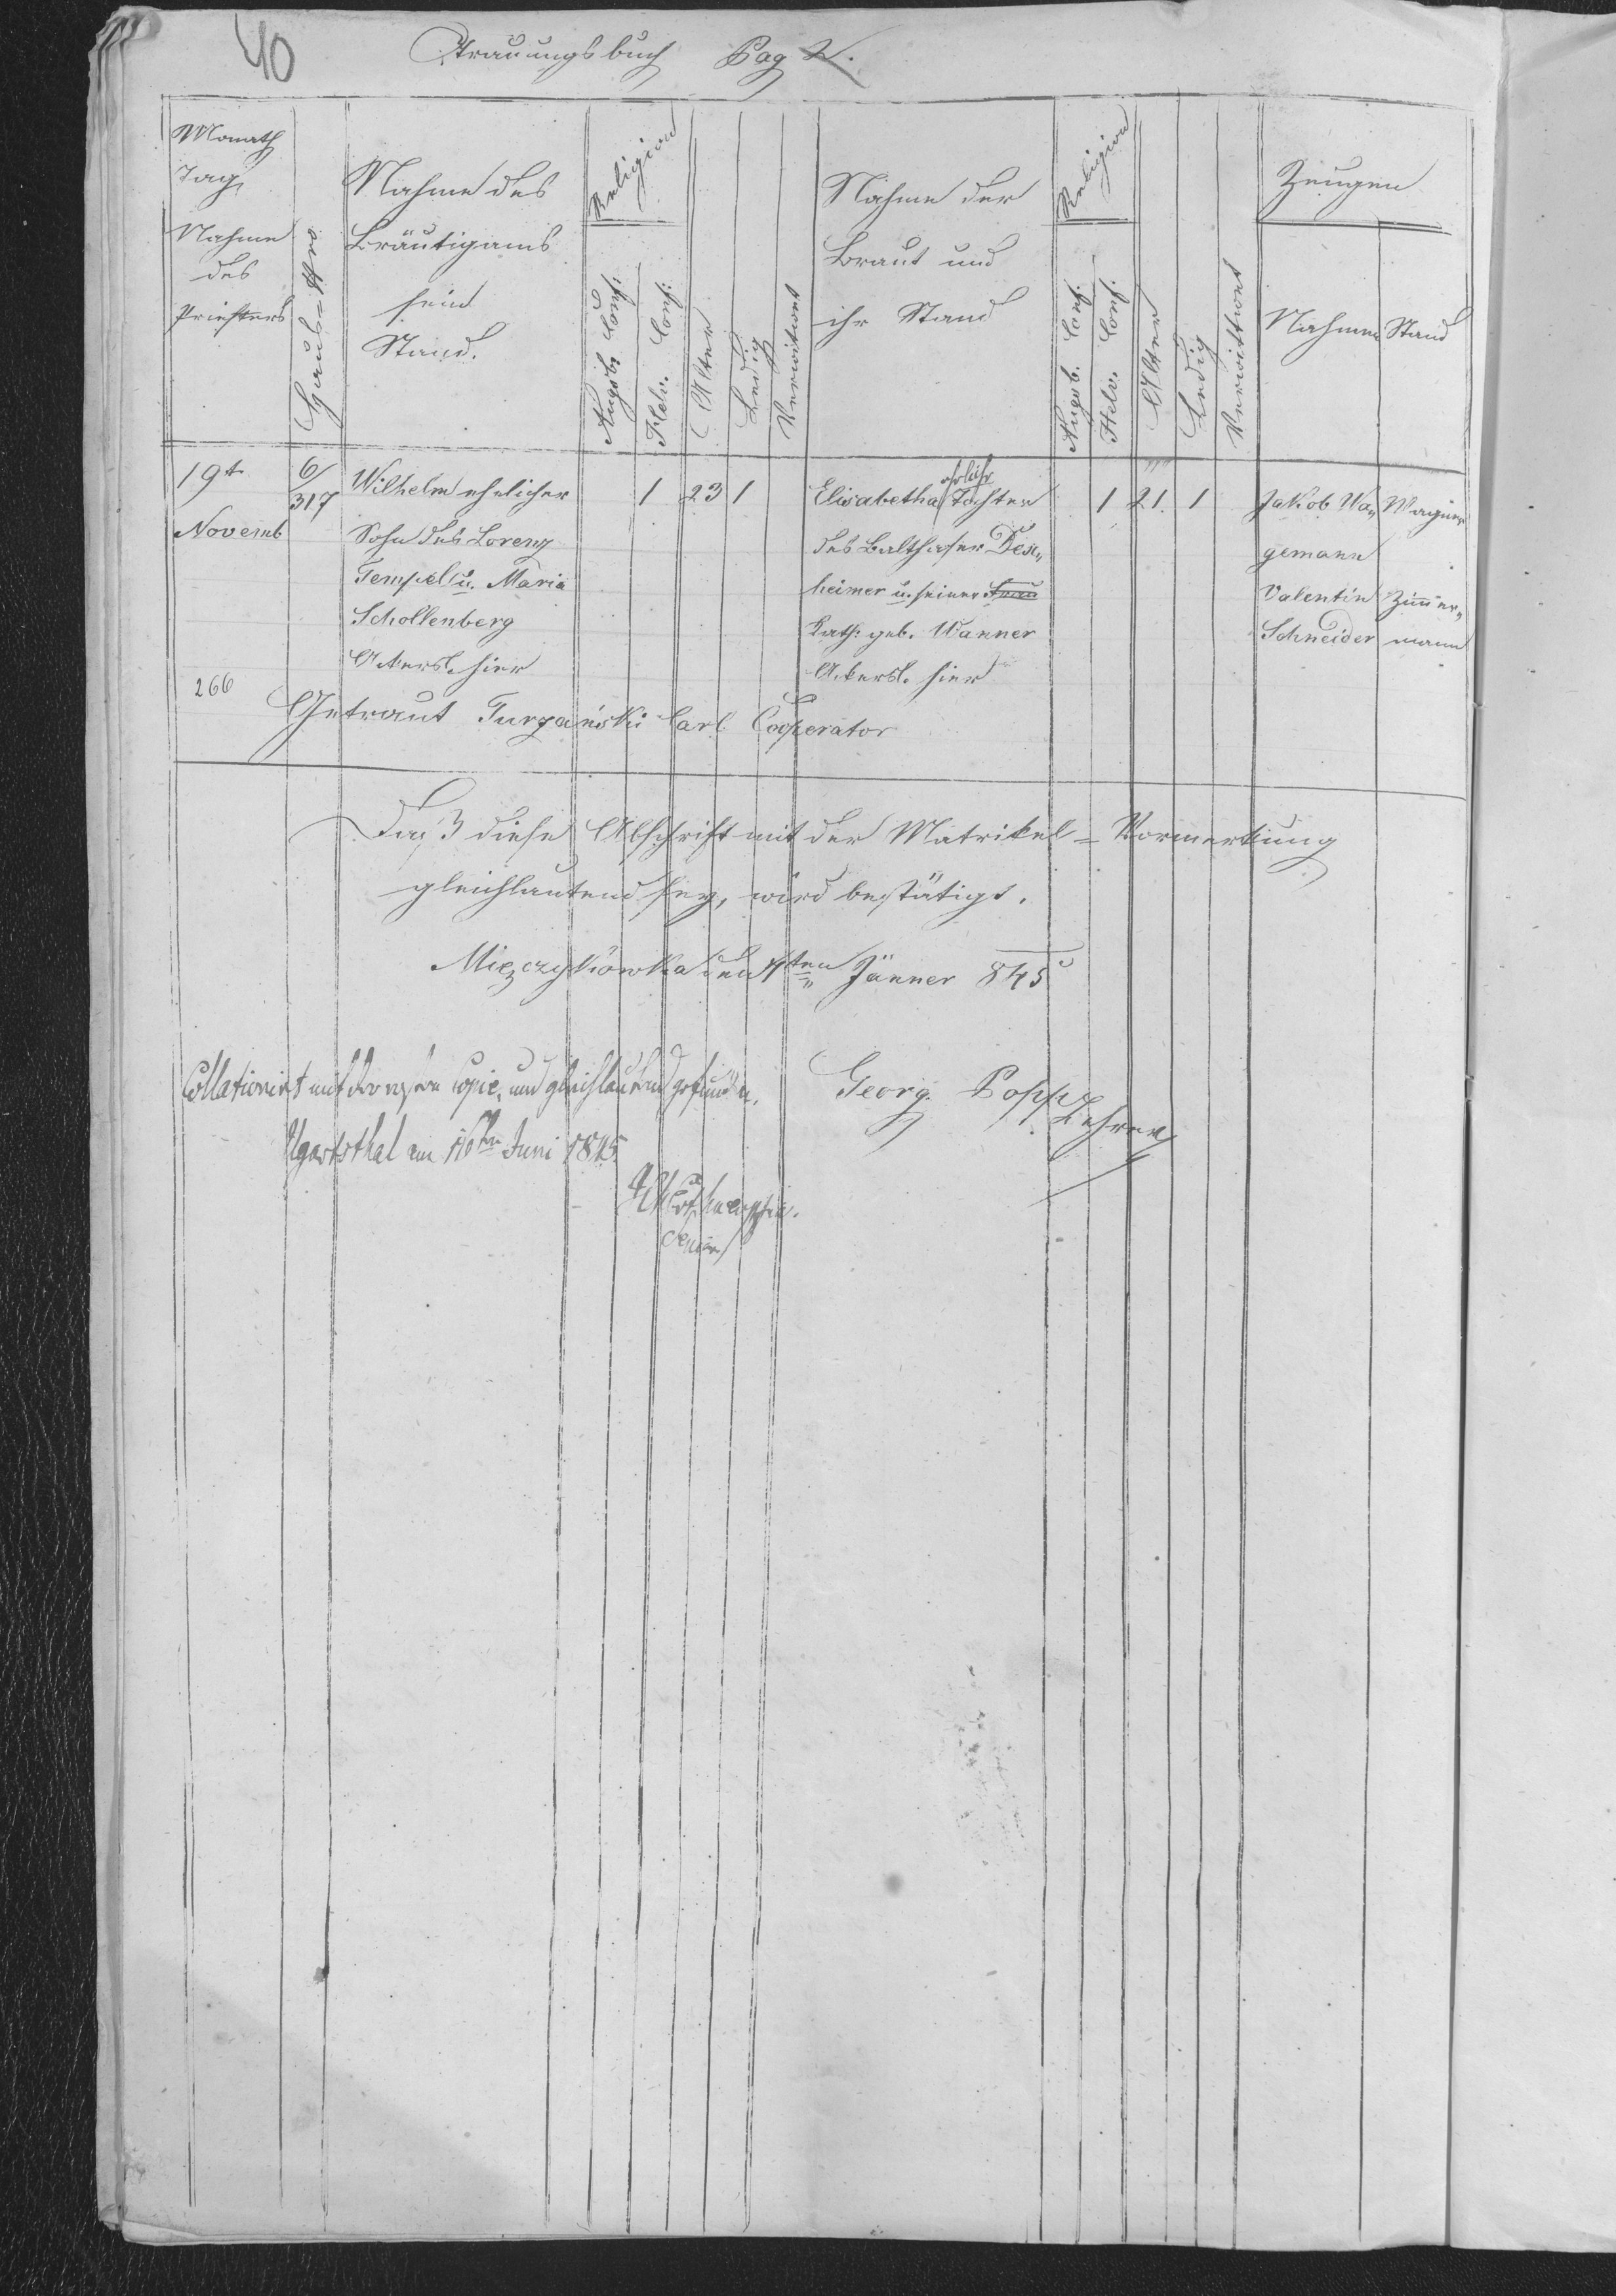 40 Trauungsbuch Pag 2.
Monath
Tag,
Nahme
des
Priesters
Haus-Nro
Nahme des
Bräutigams
sein
Stand.
Religion
Augsb. Conf.
Helv. Conf.
Alter
Ledig
Verwitwet
Nahme der
Braut und
ihr Stand
Religion
Augsb. Conf.
Helv. Conf.
Alter
Ledig
Verwittwet
Zeugen
Nahmen Stand
19t 6/317 Wilhelm ehelicher 1 23 1 Elisabetha ehliche Tochter 1 21 1 Jakob Wa„ Wagner
Novemb Sohn des Lorenz des Balthaser Den„ gemann
Tempel u. Maria heimer u. seiner Frau Valentin Zimmer„
Schollenberg Kath: geb. Wanner Schneider mann
Ackersl. hier Ackersl. hier
266 Getraut Turzański Carl Cooperator
Daß diese Abschrift mit der Matrikel-Vormerkung
gleichlautend sey, wird bestätigt.
den 4ten Jänner 845
Collationirt mit der Copie, und gleichlautend gefunden. Georg. Popp
Lehrer
Ugartsthal am 16ten Juni 1845
Senior